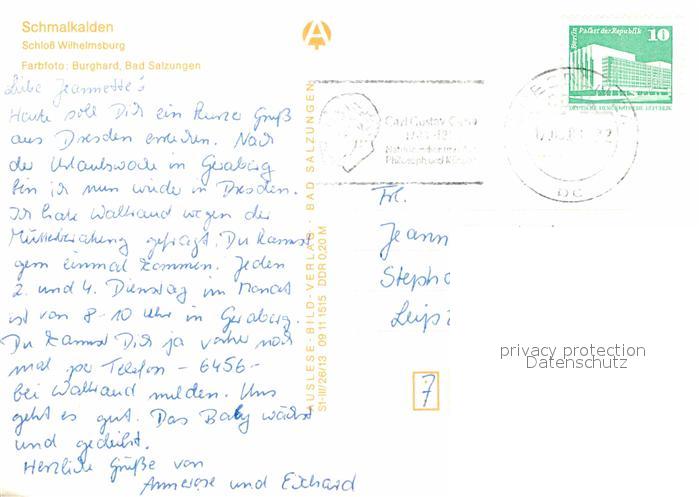 Schmalkalden
Schloß Wilhelmsburg
Farbfoto: Burghard, Bad Salzungen
Liebe Jeannette!
Heute soll Dich ein kurzer Gruß
aus Dresden erreichen. Nach
der Urlaubswoche in Geraberg
bin ich nun wieder in Dresden.
Ich habe Waltraud wegen der
Mütterberatung gefragt. Du kannst
gern einmal kommen. Jeden
2. und 4. Dienstag im Monat
ist von 8-10 Uhr in Geraberg.
Du kannst Dich ja vorher noch
mal per Telefon - 6456 -
bei Waltraud melden. Uns
geht es gut. Das Baby wächst
und gedeiht.
Herzliche Grüße von
Annerose und Eckhard
AUSLESE-BILD-VERLAG · BAD SALZUNGEN
S1-III/26/13 09 11 1515 DDR 0,20 M
Carl Gustav
Philosoph und
Berlin Palast der Republik
10
DEUTSCHE DEMOKRATISCHE REPUBLIK
bc
Frl.
Jeann
Steph
Leipz
7
privacy protection
Datenschutz